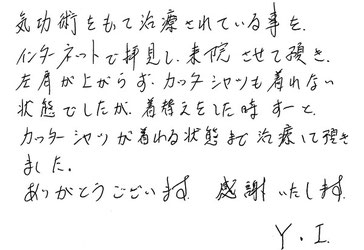 気功術をもて治療されている事を、
インターネットで拝見し、来院させて頂き、
左肩が上がらず、カッターシャツも着れない
状態でしたが、着替えをした時すーと、
カッターシャツが着れる状態まで治療して頂き
ました。
ありがとうございます。感謝いたします。
Y.I.